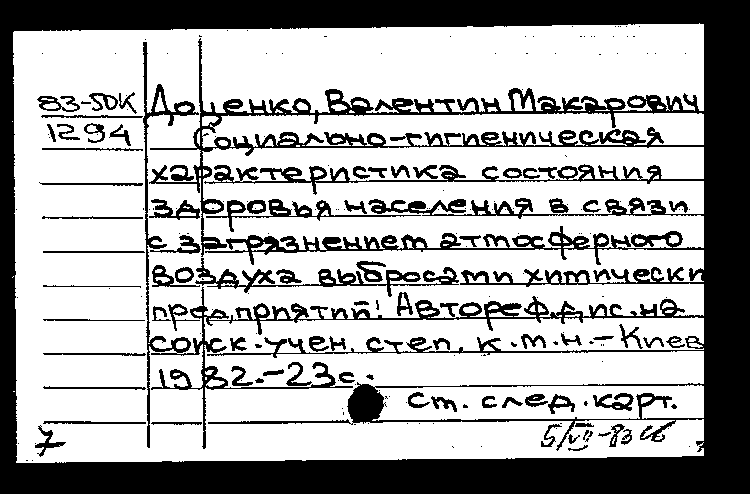 83-50К Доценко, Валентин Макарович
1294 Социально-гигиеническая
характеристика состояния
здоровья населения в связи
с загрязнением атмосферного
воздуха выбросами химически
предприятий: Автореф. дис. на
соиск. учен. степ. к.м.н. – Киев
1982. – 23 с.
см. след. карт.
7 5/VII-83